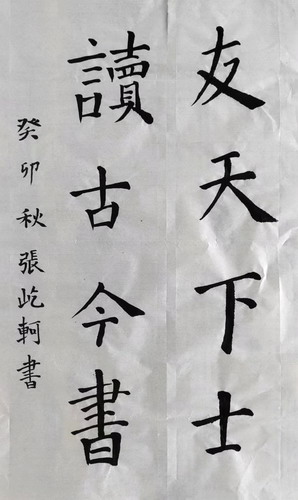 友天下士
讀古今書
癸卯秋張屹軻書